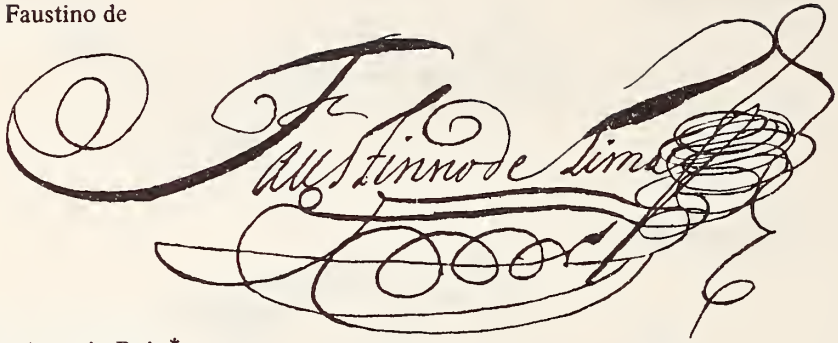 Faustino de
Faustinno de Lima